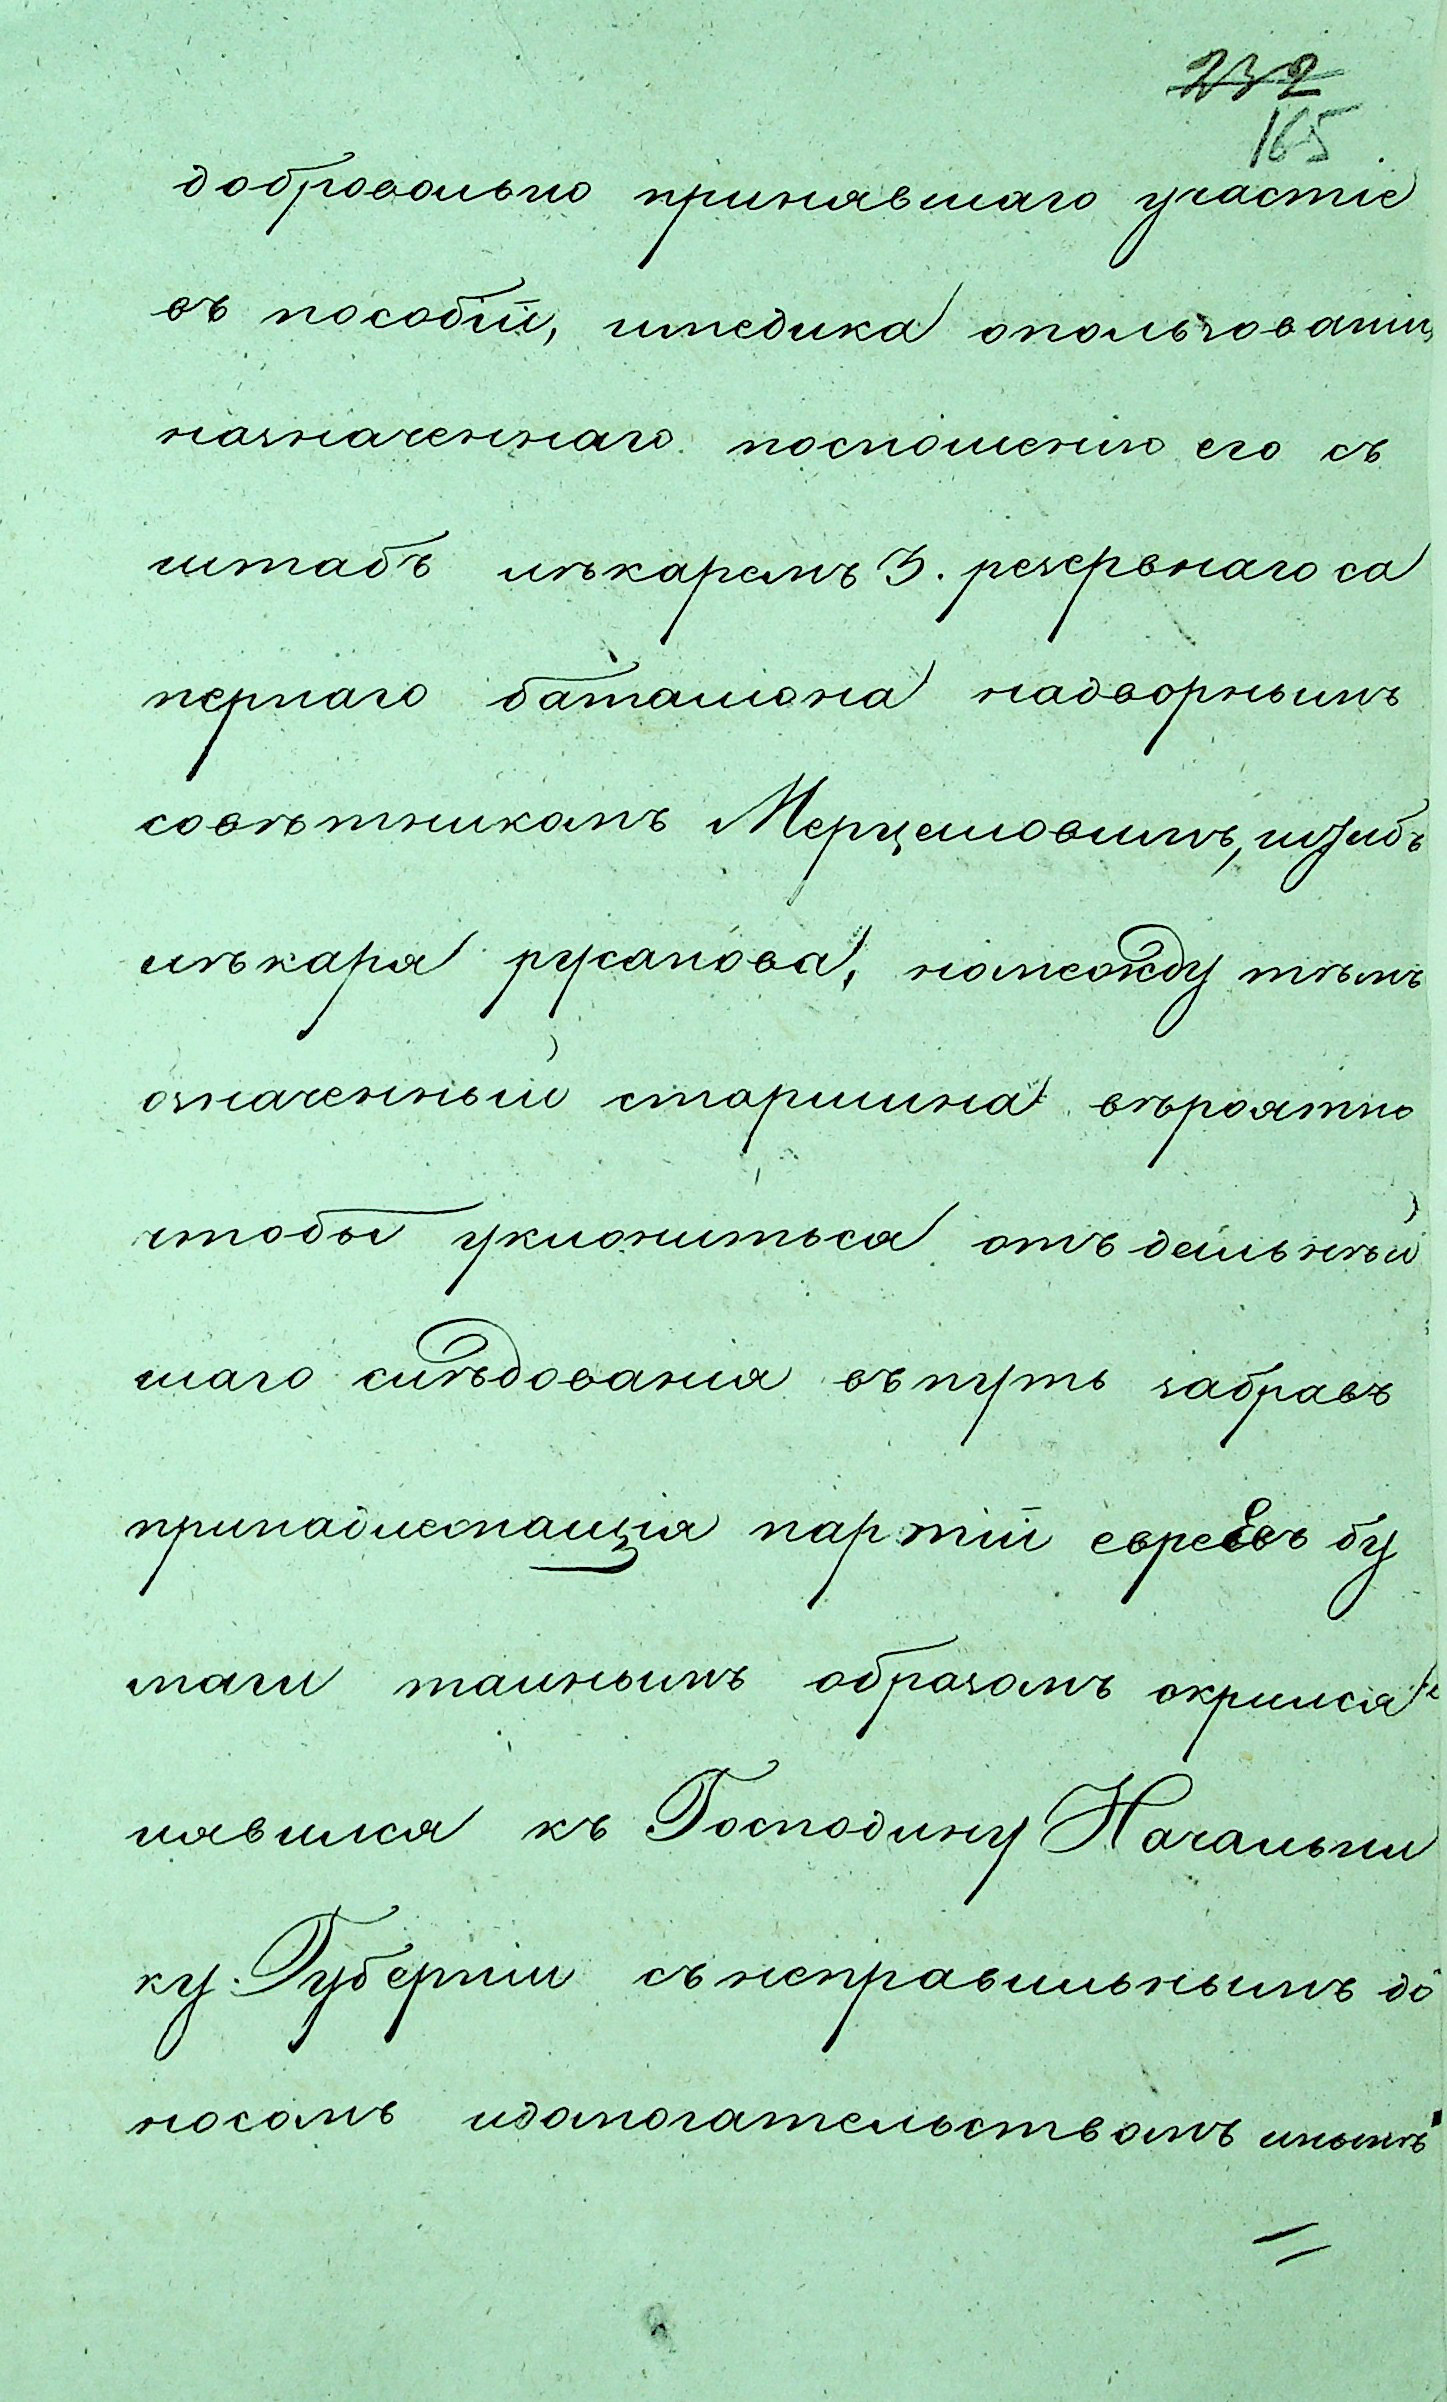 232
165
добровольно принявшаго участіе
въ пособій, имедика опользованіи,
назначеннаго поснюшенію его съ
штабъ лѣкаремъ 3. резервнаго са
пернаго баталіона надворнымъ
совѣтникомъ Мерцаловымъ, штабъ
лѣкаря русанова, намежду тѣмъ
означенный старшина вѣроятно
чтобы уклониться отъ дальнѣй
шаго слѣдованія въ путь забравъ
принадлежащія партій евреевъ бу
маги таинымъ образомъ скрился
иявился къ Господину Начальни
ку Губерніи съ неправильнымъ до
носомъ идомогательствомъ инынѣ